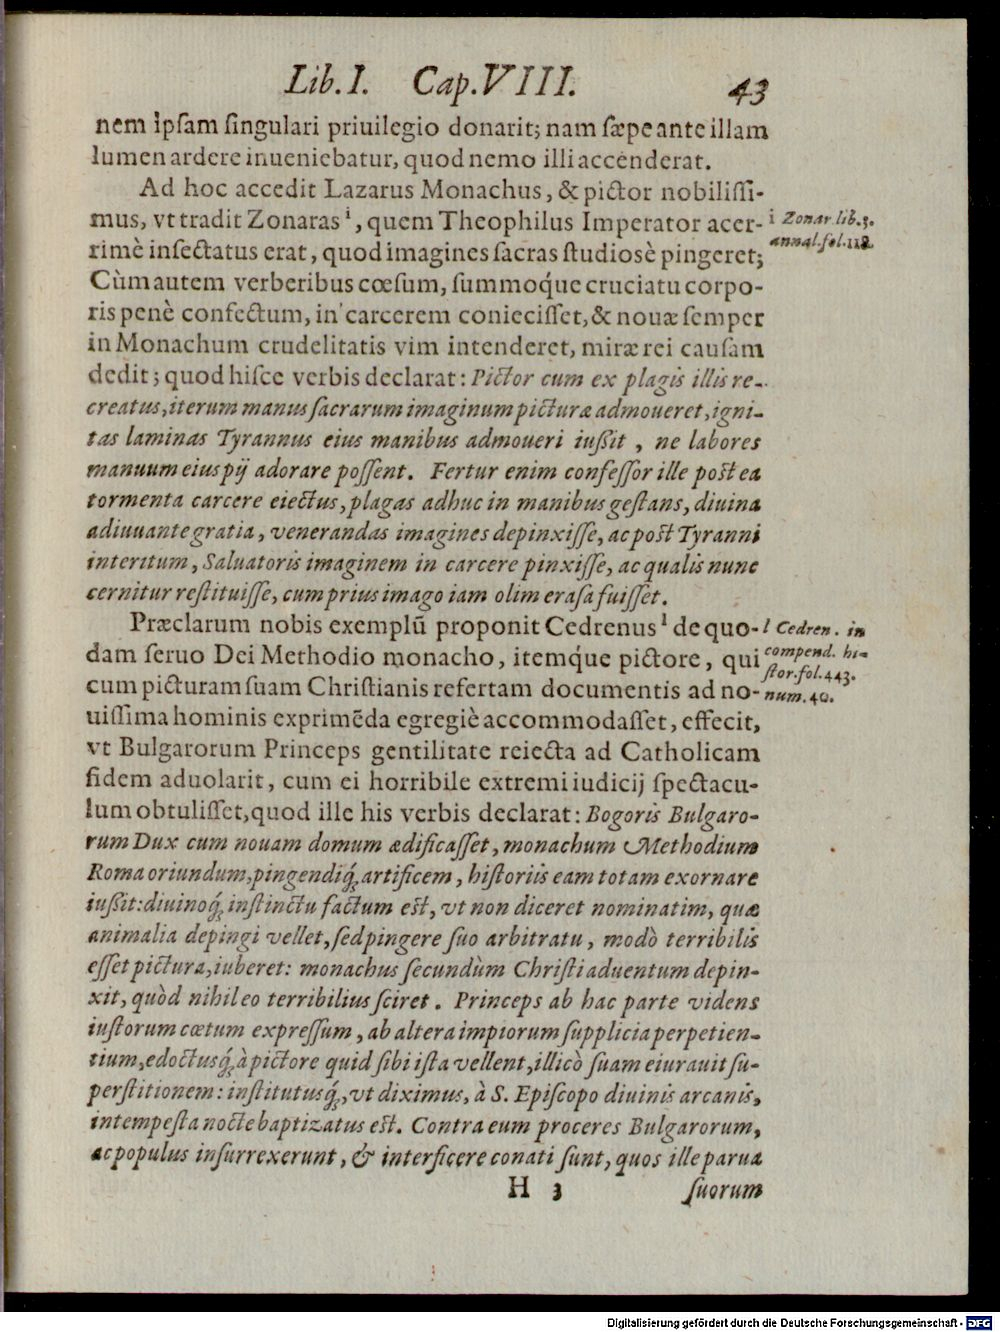 Lib. I. Cap. VIII. 43
nem ipſam ſingulari priuilegio donarit; nam ſæpe ante illam
lumen ardere inueniebatur, quod nemo illi accenderat.
Ad hoc accedit Lazarus Monachus, & pictor nobiliſſi-
mus, vt tradit Zonaras i, quem Theophilus Imperator acer-
i Zonar. lib. 3.
annal. fol. 118.
rimè inſectatus erat, quod imagines ſacras ſtudiosè pingeret;
Cùm autem verberibus cœſum, ſummoq́ue cruciatu corpo-
ris penè confectum, in carcerem conieciſſet, & nouæ ſemper
in Monachum crudelitatis vim intenderet, miræ rei cauſam
dedit; quod hiſce verbis declarat: Pictor cum ex plagis illis re-
creatus, iterum manus ſacrarum imaginum picturæ admoueret, igni-
tas laminas Tyrannus eius manibus admoueri iußit, ne labores
manuum eius pij adorare poſſent. Fertur enim confeſſor ille poſt ea
tormenta carcere eiectus, plagas adhuc in manibus geſtans, diuina
adiuuante gratia, venerandas imagines depinxiſſe, ac poſt Tyranni
interitum, Saluatoris imaginem in carcere pinxiſſe, ac qualis nunc
cernitur reſtituiſſe, cum prius imago iam olim eraſa fuiſſet.
Præclarum nobis exemplũ proponit Cedrenus l de quo-
l Cedren. in
compend. hi-
ſtor. fol. 443.
num. 40.
dam ſeruo Dei Methodio monacho, itemq́ue pictore, qui
cum picturam ſuam Chriſtianis refertam documentis ad no-
uiſſima hominis exprimẽda egregiè accommodaſſet, effecit,
vt Bulgarorum Princeps gentilitate reiecta ad Catholicam
fidem aduolarit, cum ei horribile extremi iudicij ſpectacu-
lum obtuliſſet, quod ille his verbis declarat: Bogoris Bulgaro-
rum Dux cum nouam domum ædificaſſet, monachum Methodium
Roma oriundum, pingendiq́; artificem, hiſtoriis eam totam exornare
iußit: diuinoq́; inſtinctu factum eſt, vt non diceret nominatim, quæ
animalia depingi vellet, ſed pingere ſuo arbitratu, modò terribilis
eſſet pictura, iuberet: monachus ſecundùm Chriſti aduentum depin-
xit, quòd nihil eo terribilius ſciret. Princeps ab hac parte videns
iuſtorum cœtum expreſſum, ab altera impiorum ſupplicia perpetien-
tium, edoctusq́; à pictore quid ſibi iſta vellent, illicò ſuam eiurauit ſu-
perſtitionem: inſtitutusq́;, vt diximus, à S. Epiſcopo diuinis arcanis,
intempeſta nocte baptizatus eſt. Contra eum proceres Bulgarorum,
ac populus inſurrexerunt, & interficere conati ſunt, quos ille parua
H 3 ſuorum
Digitalisierung gefördert durch die Deutsche Forschungsgemeinschaft - DFG